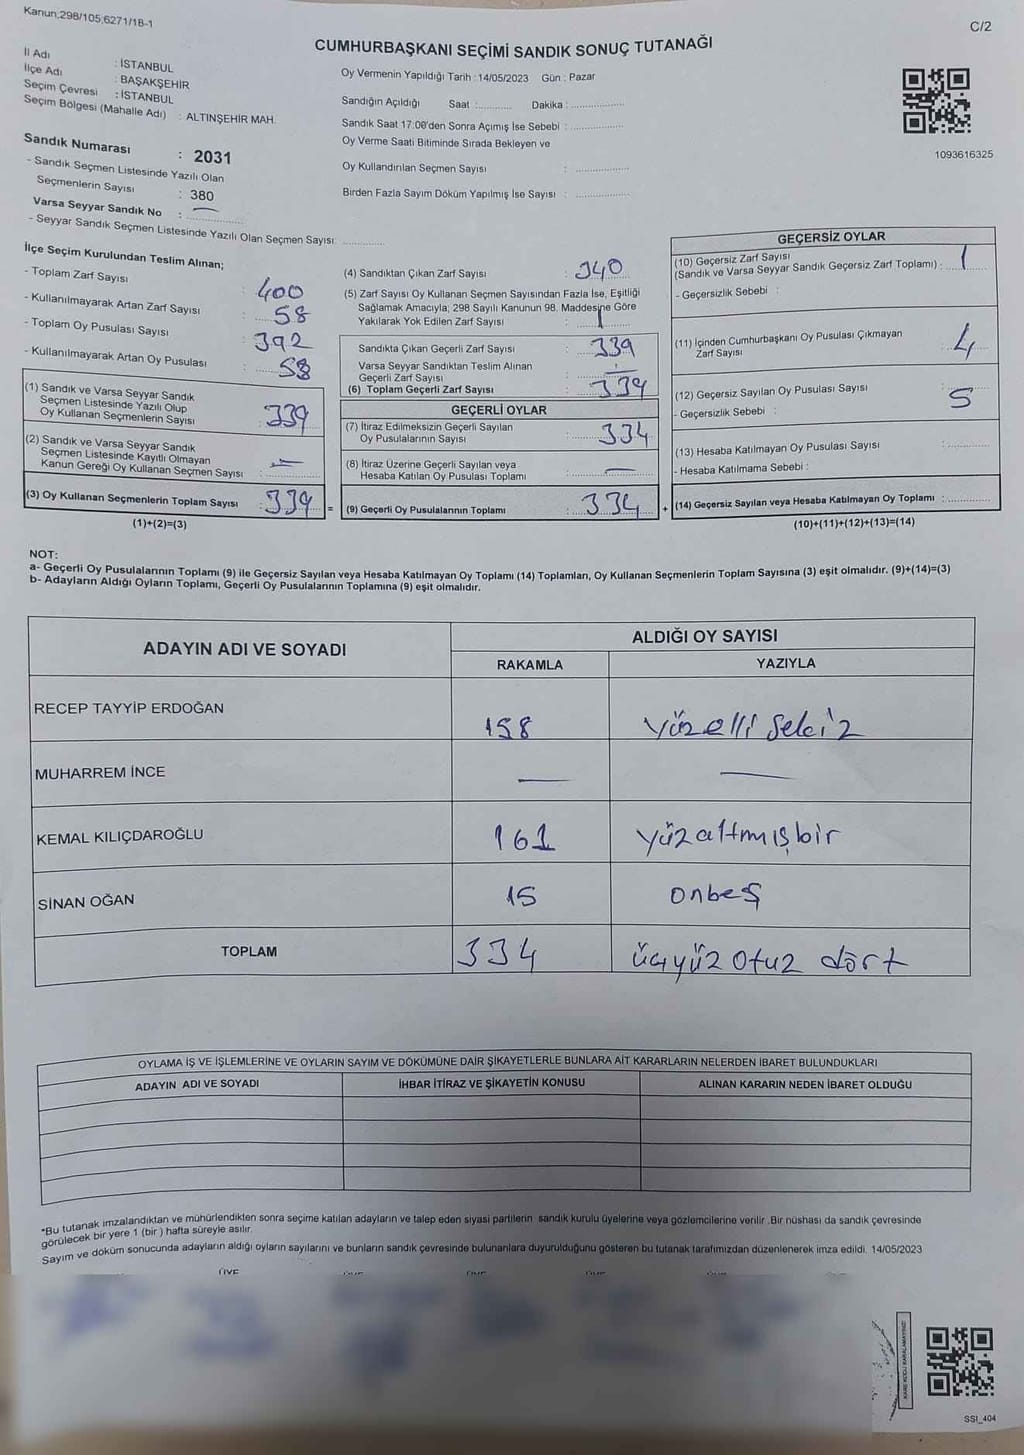 Kanun;298/105;6271/18-1
C/2
CUMHURBAŞKANI SEÇİMİ SANDIK SONUÇ TUTANAĞI
İl Adı : İSTANBUL
İlçe Adı : BAŞAKŞEHİR
Seçim Çevresi : İSTANBUL
Seçim Bölgesi (Mahalle Adı) : ALTINŞEHİR MAH.
Sandık Numarası : 2031
- Sandık Seçmen Listesinde Yazılı Olan
Seçmenlerin Sayısı : 380
Varsa Seyyar Sandık No : —
- Seyyar Sandık Seçmen Listesinde Yazılı Olan Seçmen Sayısı: ............
Oy Vermenin Yapıldığı Tarih : 14/05/2023 Gün : Pazar
Sandığın Açıldığı Saat :........... Dakika :.................
Sandık Saat 17:00'den Sonra Açımış İse Sebebi : .................
Oy Verme Saati Bitiminde Sırada Bekleyen ve
Oy Kullandırılan Seçmen Sayısı : .................
Birden Fazla Sayım Döküm Yapılmış İse Sayısı : .................
1093616325
İlçe Seçim Kurulundan Teslim Alınan;
- Toplam Zarf Sayısı : 400
- Kullanılmayarak Artan Zarf Sayısı : 58
- Toplam Oy Pusulası Sayısı : 392
- Kullanılmayarak Artan Oy Pusulası : 58
(1) Sandık ve Varsa Seyyar Sandık
Seçmen Listesinde Yazılı Olup
Oy Kullanan Seçmenlerin Sayısı : 339
(2) Sandık ve Varsa Seyyar Sandık
Seçmen Listesinde Kayıtlı Olmayan
Kanun Gereği Oy Kullanan Seçmen Sayısı : —
(3) Oy Kullanan Seçmenlerin Toplam Sayısı : 339 =
(1)+(2)=(3)
(4) Sandıktan Çıkan Zarf Sayısı : 340
(5) Zarf Sayısı Oy Kullanan Seçmen Sayısından Fazla İse, Eşitliği
Sağlamak Amacıyla; 298 Sayılı Kanunun 98. Maddesine Göre
Yakılarak Yok Edilen Zarf Sayısı : 1
Sandıkta Çıkan Geçerli Zarf Sayısı : 339
Varsa Seyyar Sandıktan Teslim Alınan
Geçerli Zarf Sayısı : —
(6) Toplam Geçerli Zarf Sayısı : 339
GEÇERLİ OYLAR
(7) İtiraz Edilmeksizin Geçerli Sayılan
Oy Pusulalarının Sayısı : 334
(8) İtiraz Üzerine Geçerli Sayılan veya
Hesaba Katılan Oy Pusulası Toplamı : —
(9) Geçerli Oy Pusulalarının Toplamı : 334 +
GEÇERSİZ OYLAR
(10) Geçersiz Zarf Sayısı
(Sandık ve Varsa Seyyar Sandık Geçersiz Zarf Toplamı) : 1
- Geçersizlik Sebebi :
(11) İçinden Cumhurbaşkanı Oy Pusulası Çıkmayan
Zarf Sayısı : 4
(12) Geçersiz Sayılan Oy Pusulası Sayısı : 5
- Geçersizlik Sebebi :
(13) Hesaba Katılmayan Oy Pusulası Sayısı : ............
- Hesaba Katılmama Sebebi :
(14) Geçersiz Sayılan veya Hesaba Katılmayan Oy Toplamı : ............
(10)+(11)+(12)+(13)=(14)
NOT:
a- Geçerli Oy Pusulalarının Toplamı (9) ile Geçersiz Sayılan veya Hesaba Katılmayan Oy Toplamı (14) Toplamları, Oy Kullanan Seçmenlerin Toplam Sayısına (3) eşit olmalıdır. (9)+(14)=(3)
b- Adayların Aldığı Oyların Toplamı, Geçerli Oy Pusulalarının Toplamına (9) eşit olmalıdır.
ADAYIN ADI VE SOYADI ALDIĞI OY SAYISI
RAKAMLA YAZIYLA
RECEP TAYYİP ERDOĞAN 158 yüzelli sekiz
MUHARREM İNCE — —
KEMAL KILIÇDAROĞLU 161 yüzaltmışbir
SİNAN OĞAN 15 onbeş
TOPLAM 334 üçyüz otuz dört
OYLAMA İŞ VE İŞLEMLERİNE VE OYLARIN SAYIM VE DÖKÜMÜNE DAİR ŞİKAYETLERLE BUNLARA AİT KARARLARIN NELERDEN İBARET BULUNDUKLARI
ADAYIN ADI VE SOYADI İHBAR İTİRAZ VE ŞİKAYETİN KONUSU ALINAN KARARIN NEDEN İBARET OLDUĞU
*Bu tutanak imzalandıktan ve mühürlendikten sonra seçime katılan adayların ve talep eden siyasi partilerin sandık kurulu üyelerine veya gözlemcilerine verilir .Bir nüshası da sandık çevresinde
görülecek bir yere 1 (bir ) hafta süreyle asılır.
Sayım ve döküm sonucunda adayların aldığı oyların sayılarını ve bunların sandık çevresinde bulunanlara duyurulduğunu gösteren bu tutanak tarafımızdan düzenlenerek imza edildi. 14/05/2023
KARE KODU KARALAMAYINIZ!
SSI_404